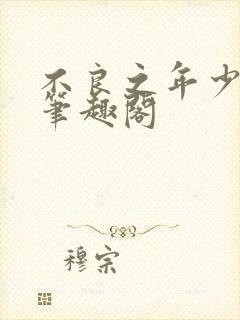 不良之年少
筆趣閣
穆宗